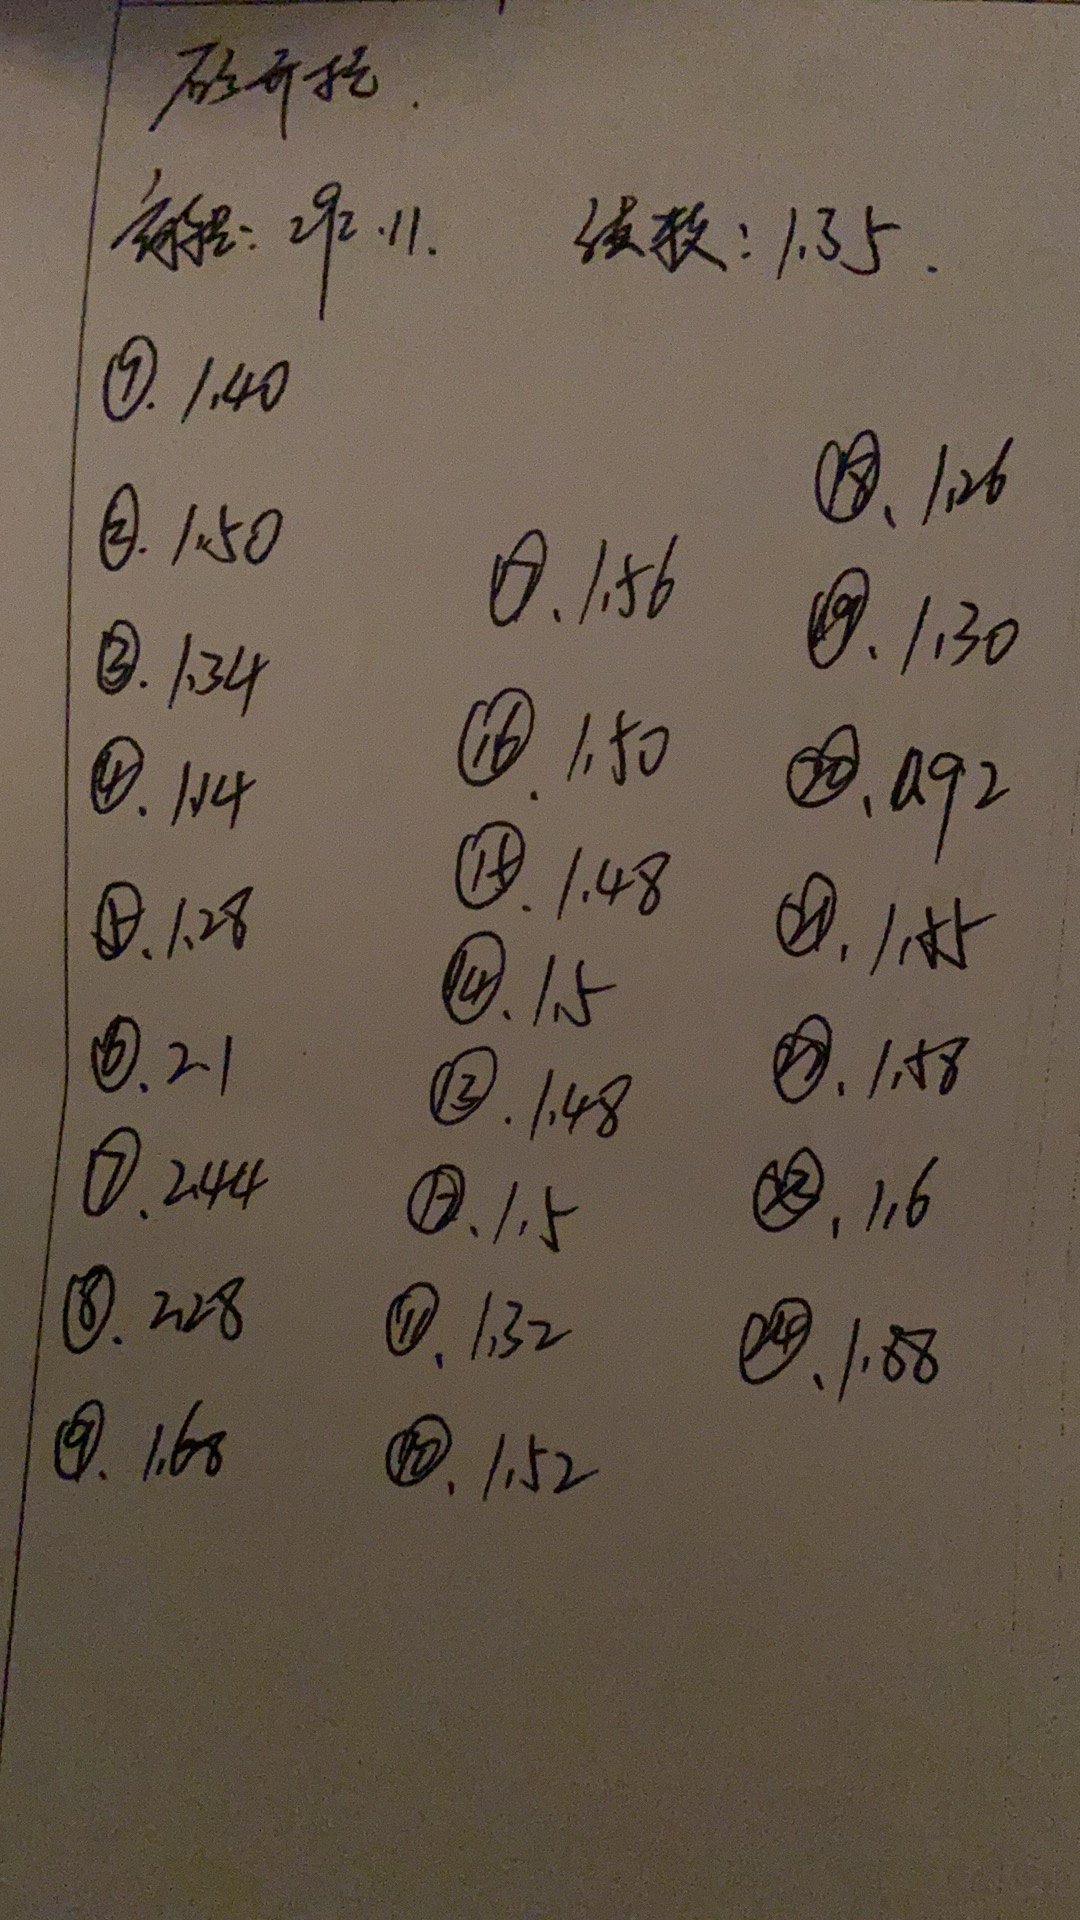 砼开挖.
高程: 292.11. 读数: 1.35.
①. 1.40
②. 1.50
③. 1.34
④. 1.14
⑤. 1.28
⑥. 2.1
⑦. 2.44
⑧. 2.28
⑨. 1.68
⑰. 1.56
⑯. 1.50
⑮. 1.48
⑭. 1.5
⑬. 1.48
⑫. 1.5
⑪. 1.32
⑩. 1.52
⑱. 1.26
⑲. 1.30
⑳. 0.92
㉑. 1.55
㉒. 1.58
㉓. 1.6
㉔. 1.88